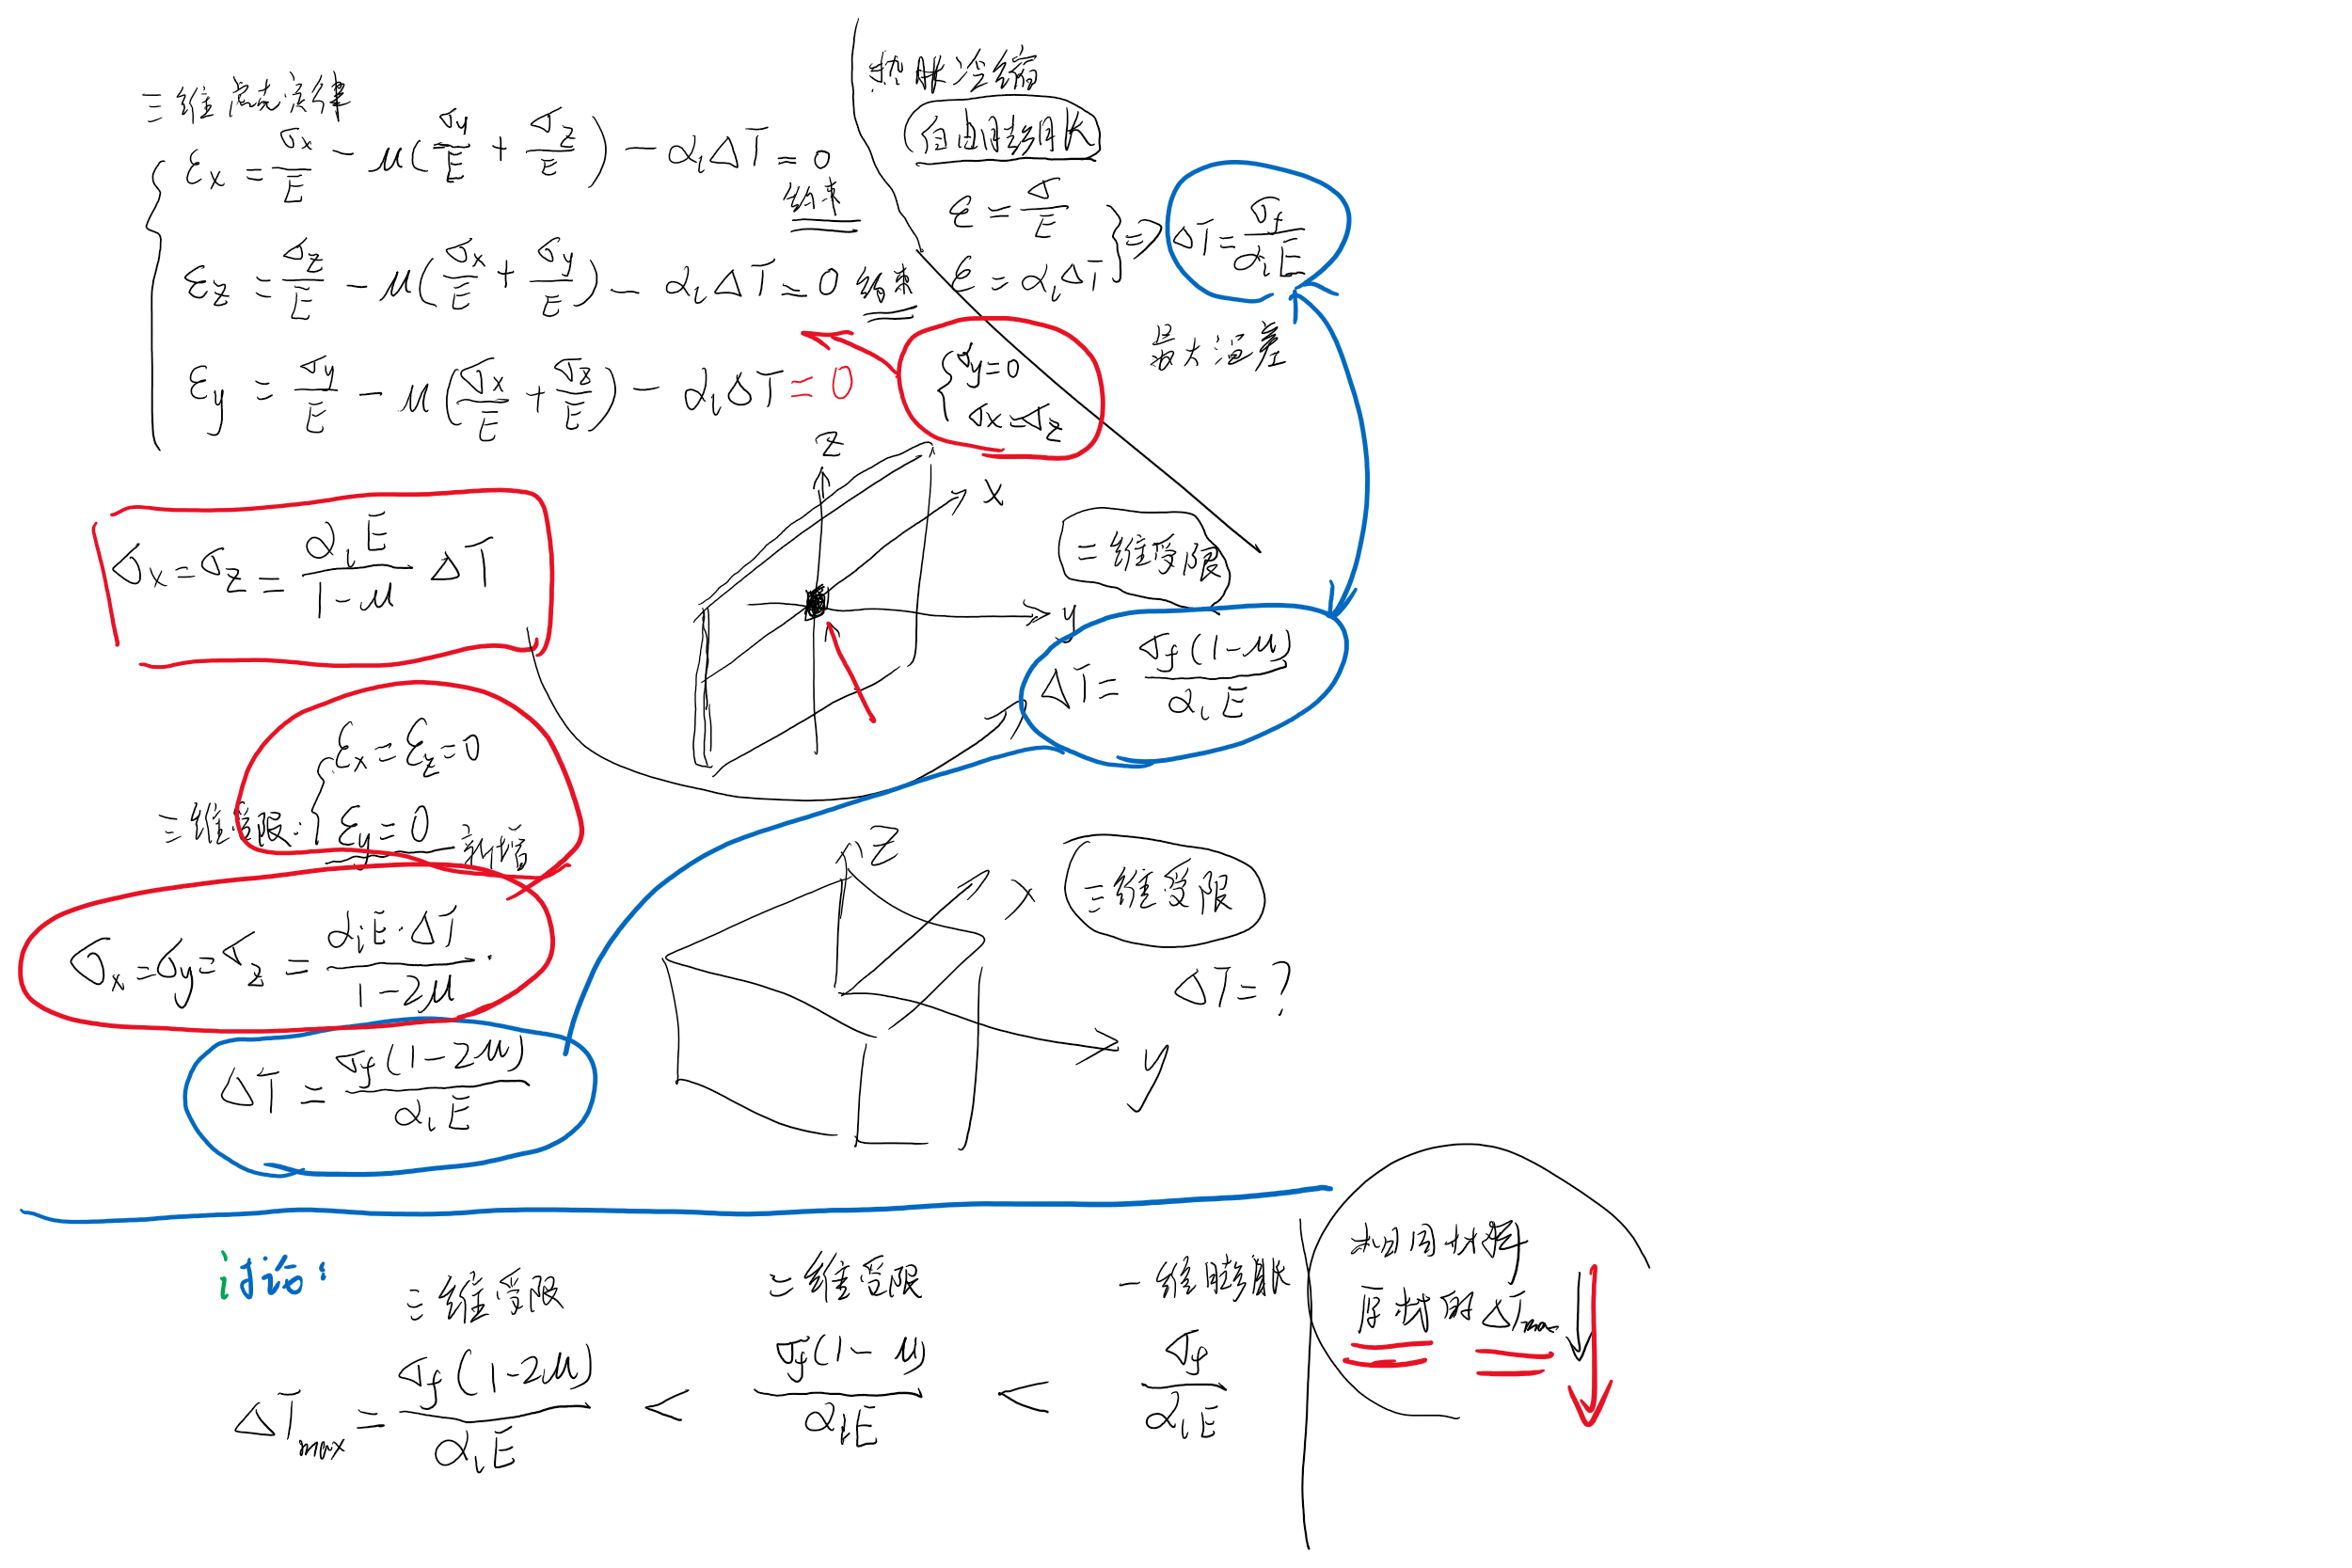 三维虎克定律
εx = σx/E − μ(σy/E + σz/E) − αlΔT = 0
约束
εz = σz/E − μ(σx/E + σy/E) − αlΔT = 0 约束
εy = σy/E − μ(σx/E + σz/E) − αlΔT = 0
热胀冷缩
自由膨胀
ε = σ/E
ε = αlΔT
⇒ ΔT = σf/αlE
最大温差
σy = 0
σx = σz
z
x
y
σx = σz = αlE/(1−μ) ΔT
二维受限
ΔT = σf(1−μ)/αlE
三维受限:
εx = εz = 0
εy = 0 新增
σx = σy = σz = αlE·ΔT/(1−2μ)
ΔT = σf(1−2μ)/αlE
z
x
y
三维受限
ΔT = ?
讨论:
三维受限 二维受限 一维膨胀
ΔTmax = σf(1−2μ)/αlE < σf(1−μ)/αlE < σf/αlE
相同材料
厚材的 ΔTmax ↓